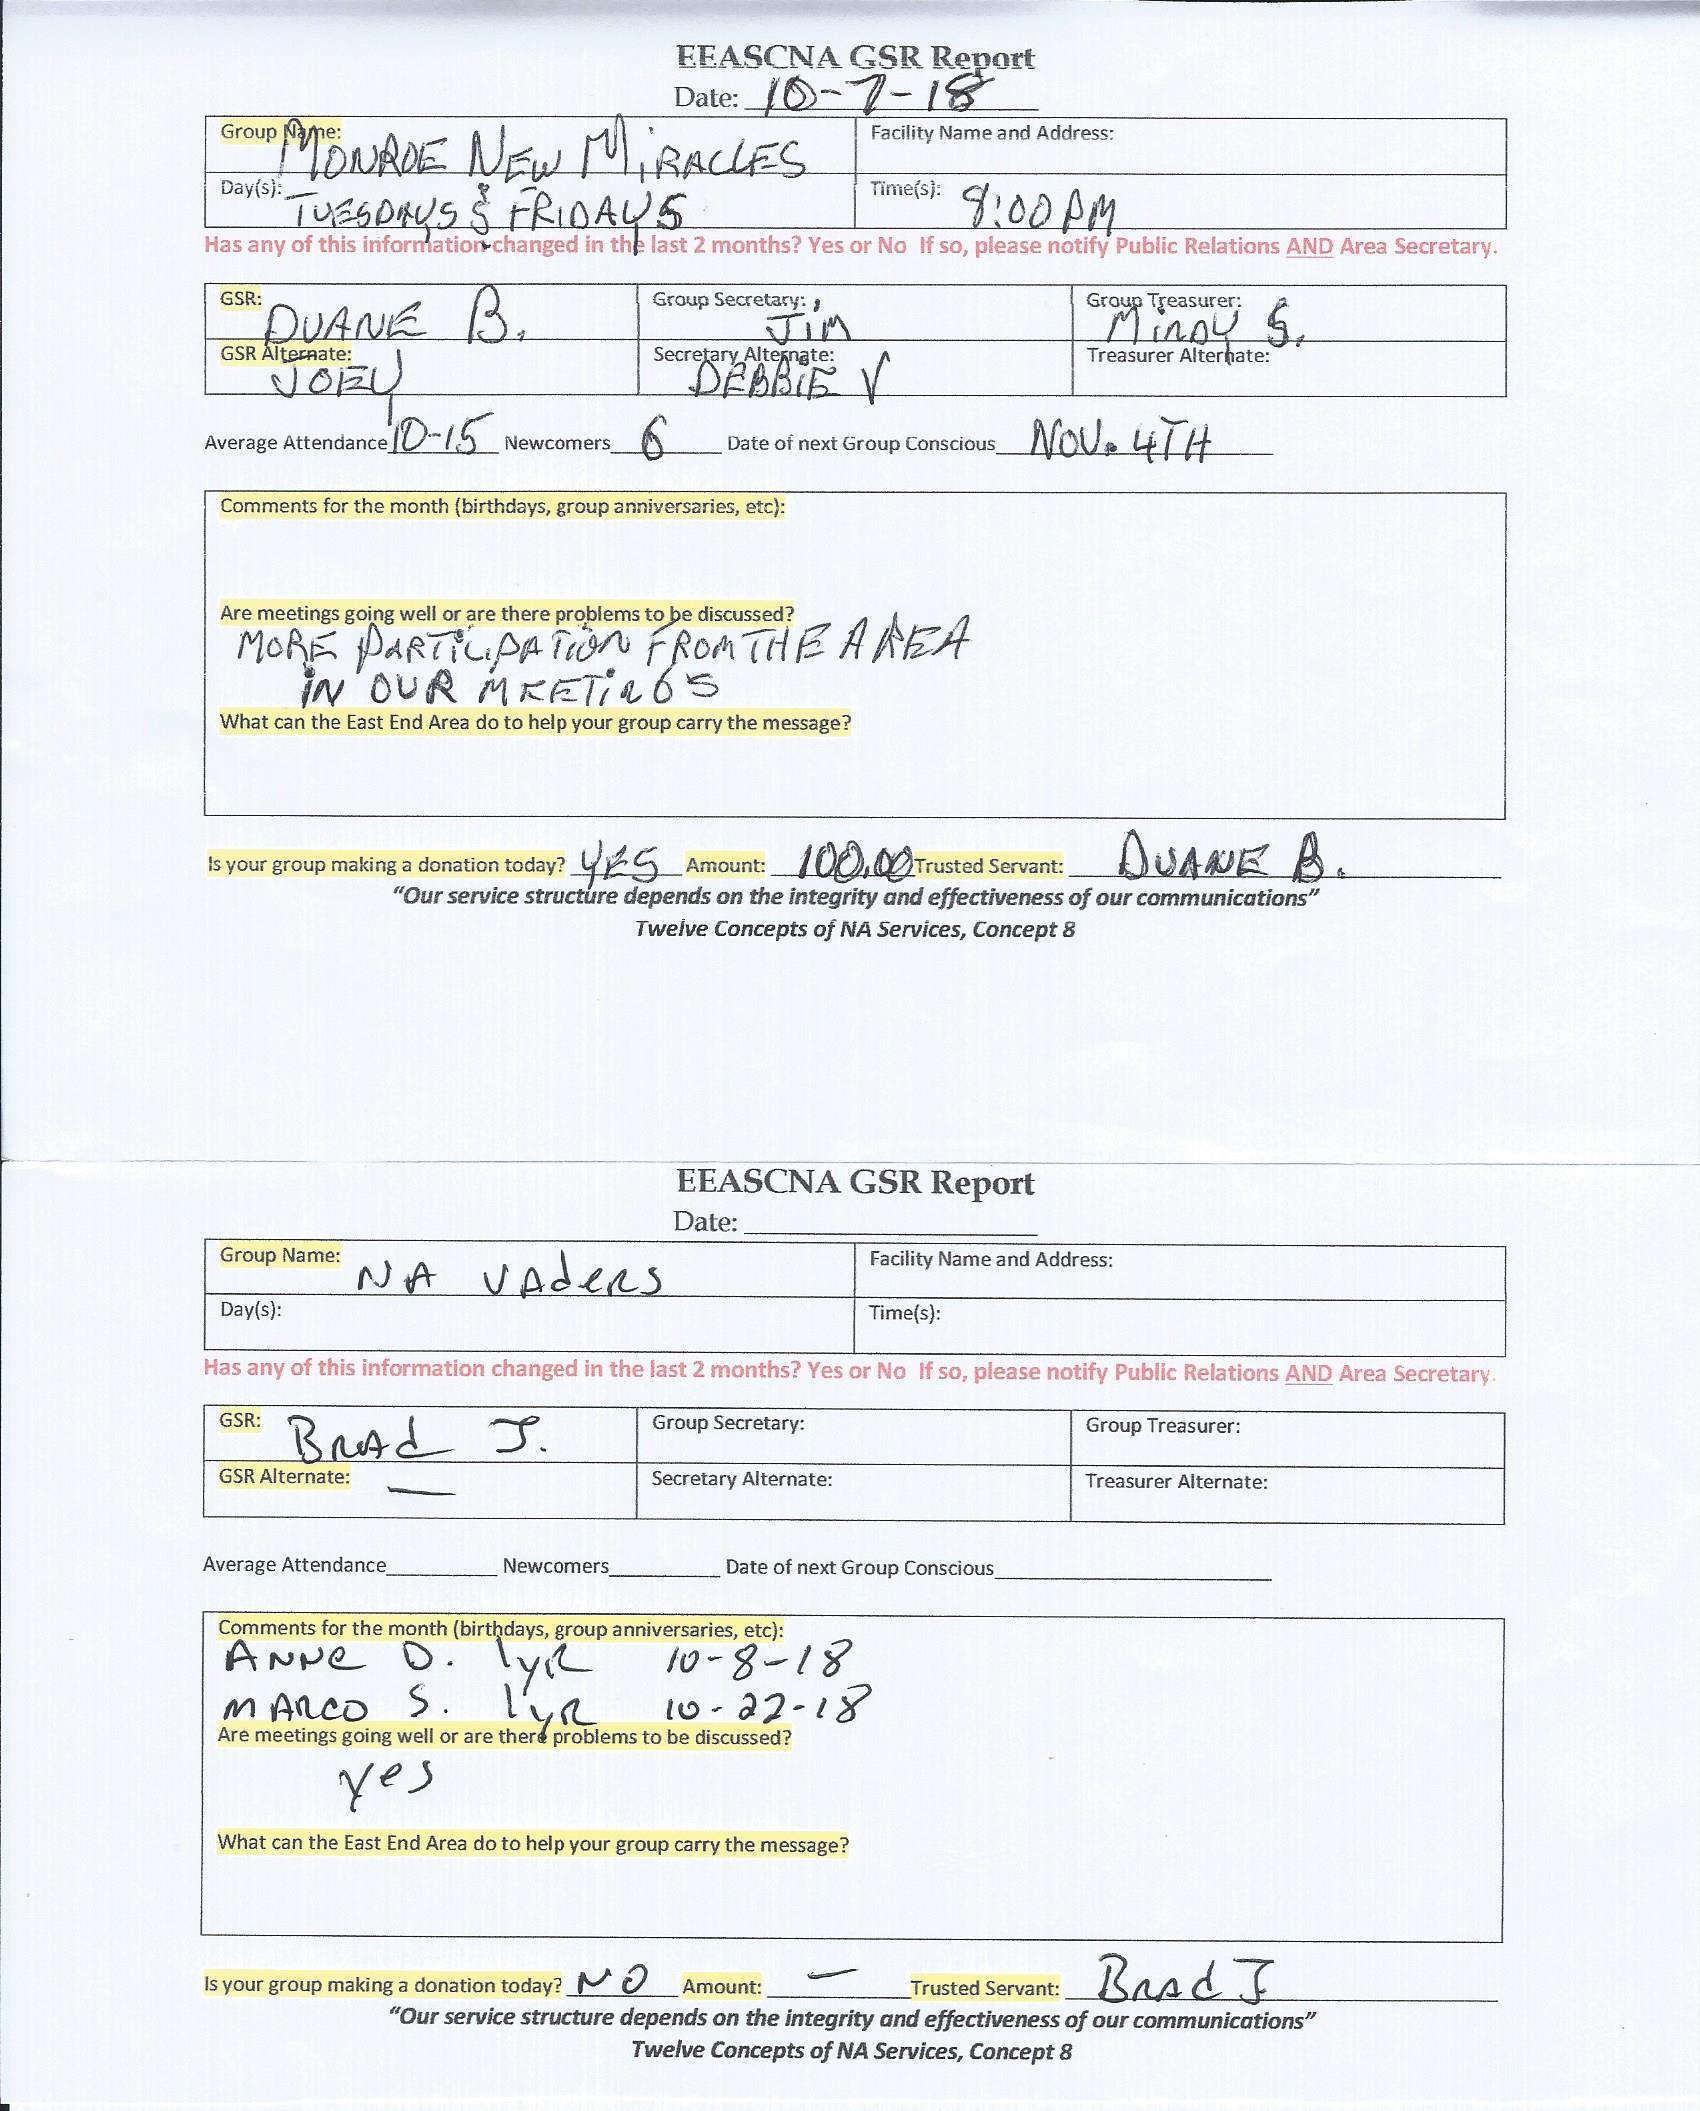 EEASCNA GSR Report
Date: 10-7-18
Group Name: MONROE NEW MIRACLES Facility Name and Address:
Day(s): TUESDAYS & FRIDAYS Time(s): 8:00 PM
Has any of this information changed in the last 2 months? Yes or No If so, please notify Public Relations AND Area Secretary.
GSR: DUANE B. Group Secretary: JIM Group Treasurer: MINDY S.
GSR Alternate: JOEY Secretary Alternate: DEBBIE V Treasurer Alternate:
Average Attendance 10-15 Newcomers 6 Date of next Group Conscious NOV. 4TH
Comments for the month (birthdays, group anniversaries, etc):
Are meetings going well or are there problems to be discussed?
MORE PARTICIPATION FROM THE AREA
IN OUR MEETINGS
What can the East End Area do to help your group carry the message?
Is your group making a donation today? YES Amount: 100.00 Trusted Servant: DUANE B.
“Our service structure depends on the integrity and effectiveness of our communications”
Twelve Concepts of NA Services, Concept 8
EEASCNA GSR Report
Date:
Group Name: NA VAdeRS Facility Name and Address:
Day(s): Time(s):
Has any of this information changed in the last 2 months? Yes or No If so, please notify Public Relations AND Area Secretary.
GSR: BRAd J. Group Secretary: Group Treasurer:
GSR Alternate: — Secretary Alternate: Treasurer Alternate:
Average Attendance Newcomers Date of next Group Conscious
Comments for the month (birthdays, group anniversaries, etc):
ANNe D. 1yR 10-8-18
MARCO S. 1yR 10-22-18
Are meetings going well or are there problems to be discussed?
yes
What can the East End Area do to help your group carry the message?
Is your group making a donation today? NO Amount: — Trusted Servant: BRAd J
“Our service structure depends on the integrity and effectiveness of our communications”
Twelve Concepts of NA Services, Concept 8